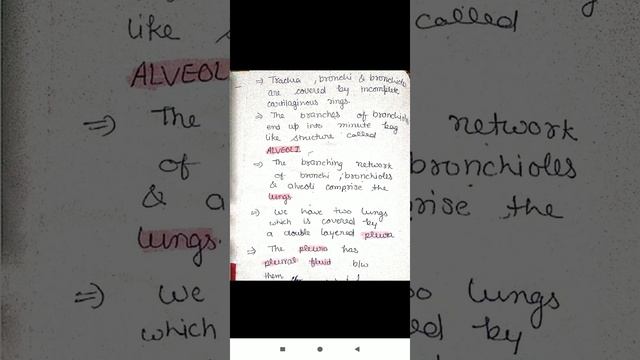 ⇒ Trachea, bronchi & bronchiole
are covered by incomplete
cartilaginous rings.
⇒ The branches of bronchiole
end up into minute bag
like structure called
ALVEOLI.
⇒ The branching network
of bronchi, bronchioles
& alveoli comprise the
lungs
⇒ We have two lungs
which is covered by
a double layered pleura
⇒ The pleura has
plural fluid b/w
them
like
called
ALVEOL
⇒ The
network
of
bronchioles
& a
rise the
lungs.
⇒ We
lungs
which
ed by